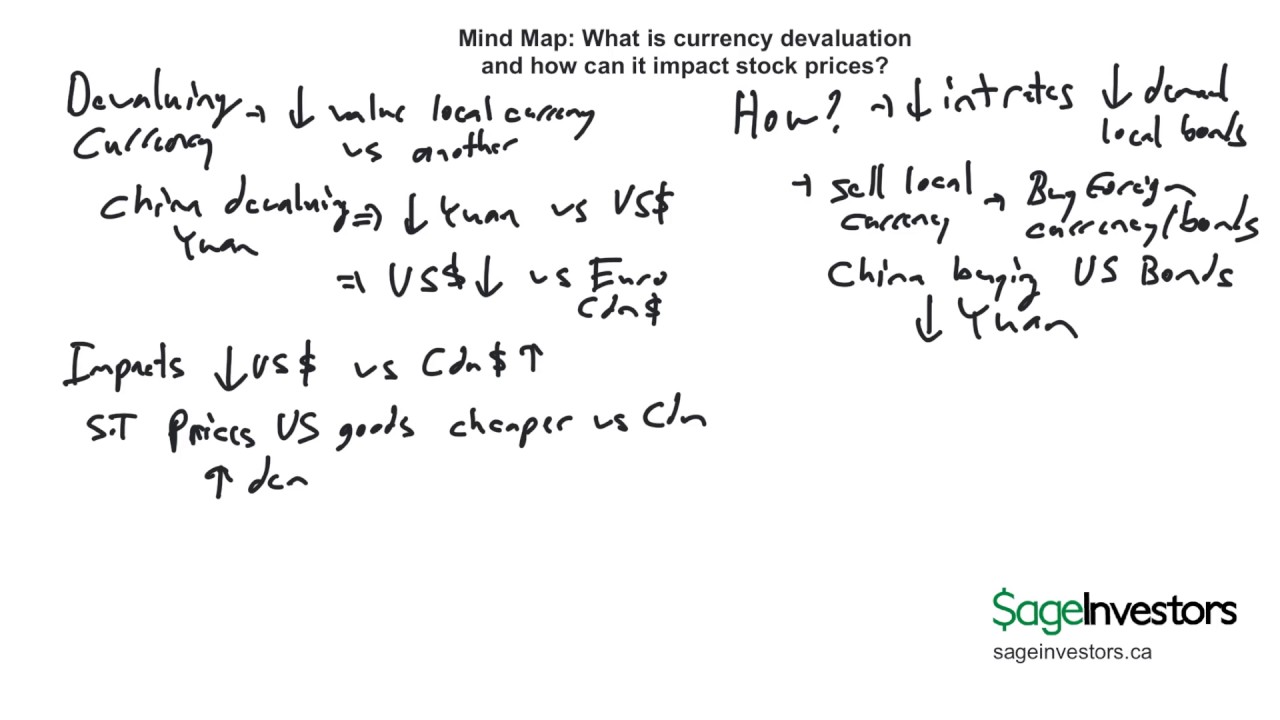 Mind Map: What is currency devaluation
and how can it impact stock prices?
Devaluing → ↓ value local currency
Currency vs another
China devaluing ⇒ ↓ Yuan vs US$
Yuan
⇒ US$ ↓ vs Euro
Cdn $
Impacts ↓ US $ vs Cdn $ ↑
S.T Prices US goods cheaper vs Cdn
↑ dem
How? → ↓ int rates ↓ demand
local bonds
→ sell local → Buy Foreign
currency currency/bonds
China buying US Bonds
↓ Yuan
$ageInvestors
sageinvestors.ca